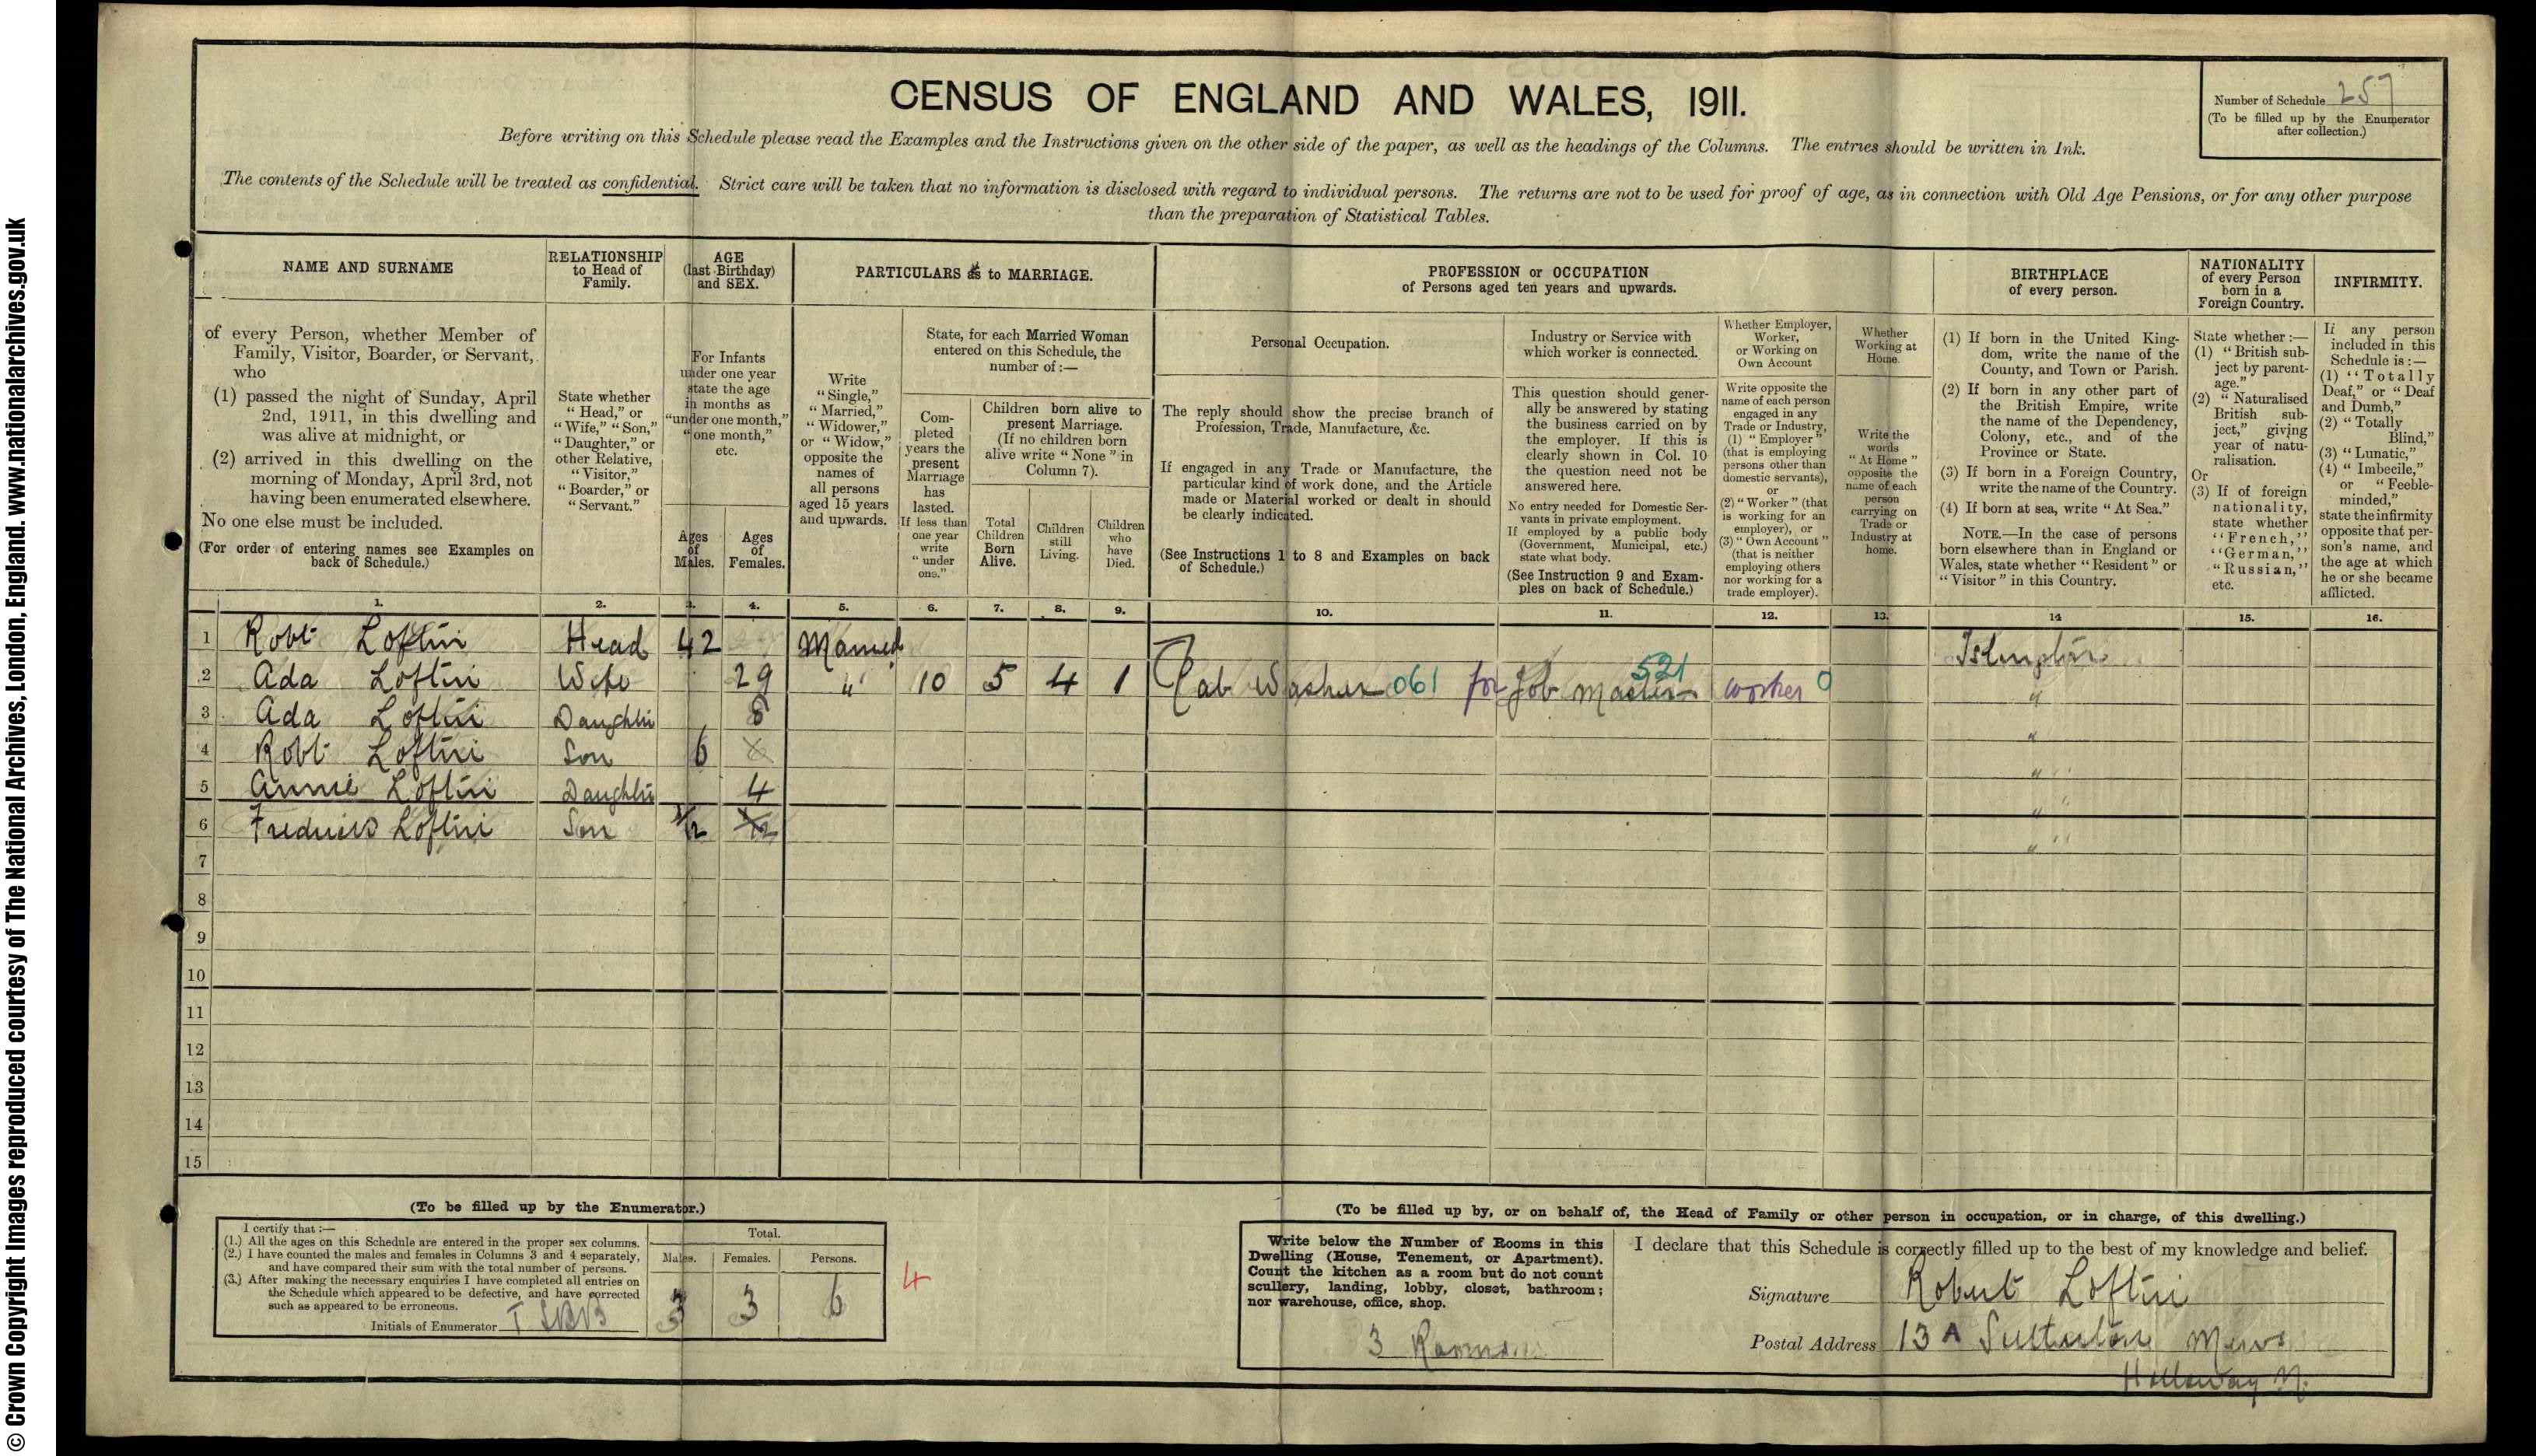 © Crown Copyright Images reproduced courtesy of The National Archives, London, England. www.nationalarchives.gov.uk
CENSUS OF ENGLAND AND WALES, 1911.
Number of Schedule 257
(To be filled up by the Enumerator
after collection.)
Before writing on this Schedule please read the Examples and the Instructions given on the other side of the paper, as well as the headings of the Columns. The entries should be written in Ink.
The contents of the Schedule will be treated as confidential. Strict care will be taken that no information is disclosed with regard to individual persons. The returns are not to be used for proof of age, as in connection with Old Age Pensions, or for any other purpose
than the preparation of Statistical Tables.
NAME AND SURNAME
of every Person, whether Member of
Family, Visitor, Boarder, or Servant,
who
(1) passed the night of Sunday, April
2nd, 1911, in this dwelling and
was alive at midnight, or
(2) arrived in this dwelling on the
morning of Monday, April 3rd, not
having been enumerated elsewhere.
No one else must be included.
(For order of entering names see Examples on
back of Schedule.)
RELATIONSHIP
to Head of
Family.
State whether
"Head," or
"Wife," "Son,"
"Daughter," or
other Relative,
"Visitor,"
"Boarder," or
"Servant."
AGE
(last Birthday)
and SEX.
For Infants
under one year
state the age
in months as
"under one month,"
"one month,"
etc.
Ages
of
Males.
Ages
of
Females.
PARTICULARS as to MARRIAGE.
Write
"Single,"
"Married,"
"Widower,"
or "Widow,"
opposite the
names of
all persons
aged 15 years
and upwards.
State, for each Married Woman
entered on this Schedule, the
number of :—
Com-
pleted
years the
present
Marriage
has
lasted.
If less than
one year
write
"under
one."
Children born alive to
present Marriage.
(If no children born
alive write "None" in
Column 7).
Total
Children
Born
Alive.
Children
still
Living.
Children
who
have
Died.
PROFESSION or OCCUPATION
of Persons aged ten years and upwards.
Personal Occupation.
The reply should show the precise branch of
Profession, Trade, Manufacture, &c.
If engaged in any Trade or Manufacture, the
particular kind of work done, and the Article
made or Material worked or dealt in should
be clearly indicated.
(See Instructions 1 to 8 and Examples on back
of Schedule.)
Industry or Service with
which worker is connected.
This question should gener-
ally be answered by stating
the business carried on by
the employer. If this is
clearly shown in Col. 10
the question need not be
answered here.
No entry needed for Domestic Ser-
vants in private employment.
If employed by a public body
(Government, Municipal, etc.)
state what body.
(See Instruction 9 and Exam-
ples on back of Schedule.)
Whether Employer,
Worker,
or Working on
Own Account
Write opposite the
name of each person
engaged in any
Trade or Industry,
(1) "Employer"
(that is employing
persons other than
domestic servants),
or
(2) "Worker" (that
is working for an
employer), or
(3) "Own Account"
(that is neither
employing others
nor working for a
trade employer).
Whether
Working at
Home.
Write the
words
"At Home"
opposite the
name of each
person
carrying on
Trade or
Industry at
home.
BIRTHPLACE
of every person.
(1) If born in the United King-
dom, write the name of the
County, and Town or Parish.
(2) If born in any other part of
the British Empire, write
the name of the Dependency,
Colony, etc., and of the
Province or State.
(3) If born in a Foreign Country,
write the name of the Country.
(4) If born at sea, write "At Sea."
NOTE.—In the case of persons
born elsewhere than in England or
Wales, state whether "Resident" or
"Visitor" in this Country.
NATIONALITY
of every Person
born in a
Foreign Country.
State whether :—
(1) "British sub-
ject by parent-
age."
(2) "Naturalised
British sub-
ject," giving
year of natu-
ralisation.
Or
(3) If of foreign
nationality,
state whether
"French,"
"German,"
"Russian,"
etc.
INFIRMITY.
If any person
included in this
Schedule is :—
(1) "Totally
Deaf," or "Deaf
and Dumb,"
(2) "Totally
Blind,"
(3) "Lunatic,"
(4) "Imbecile,"
or "Feeble-
minded,"
state the infirmity
opposite that per-
son's name, and
the age at which
he or she became
afflicted.
1. 2. 3. 4. 5. 6. 7. 8. 9. 10. 11. 12. 13. 14 15. 16.
1 Robt Loftin Head 42 Married Islington
2 Ada Loftin Wife 29 " 10 5 4 1 Cab Washer 061 for Job Master 521 worker 0 "
3 Ada Loftin Daughter 8 "
4 Robt Loftin Son 6 "
5 Annie Loftin Daughter 4 "
6 Frederick Loftin Son "
7
8
9
10
11
12
13
14
15
(To be filled up by the Enumerator.)
I certify that :—
(1.) All the ages on this Schedule are entered in the proper sex columns.
(2.) I have counted the males and females in Columns 3 and 4 separately,
and have compared their sum with the total number of persons.
(3.) After making the necessary enquiries I have completed all entries on
the Schedule which appeared to be defective, and have corrected
such as appeared to be erroneous.
Initials of Enumerator
Total.
Males. Females. Persons.
3 3 6
4
(To be filled up by, or on behalf of, the Head of Family or other person in occupation, or in charge, of this dwelling.)
Write below the Number of Rooms in this
Dwelling (House, Tenement, or Apartment).
Count the kitchen as a room but do not count
scullery, landing, lobby, closet, bathroom;
nor warehouse, office, shop.
3 Rooms
I declare that this Schedule is correctly filled up to the best of my knowledge and belief.
Signature Robert Loftin
Postal Address 13A Sutterton Mews
Holloway N.